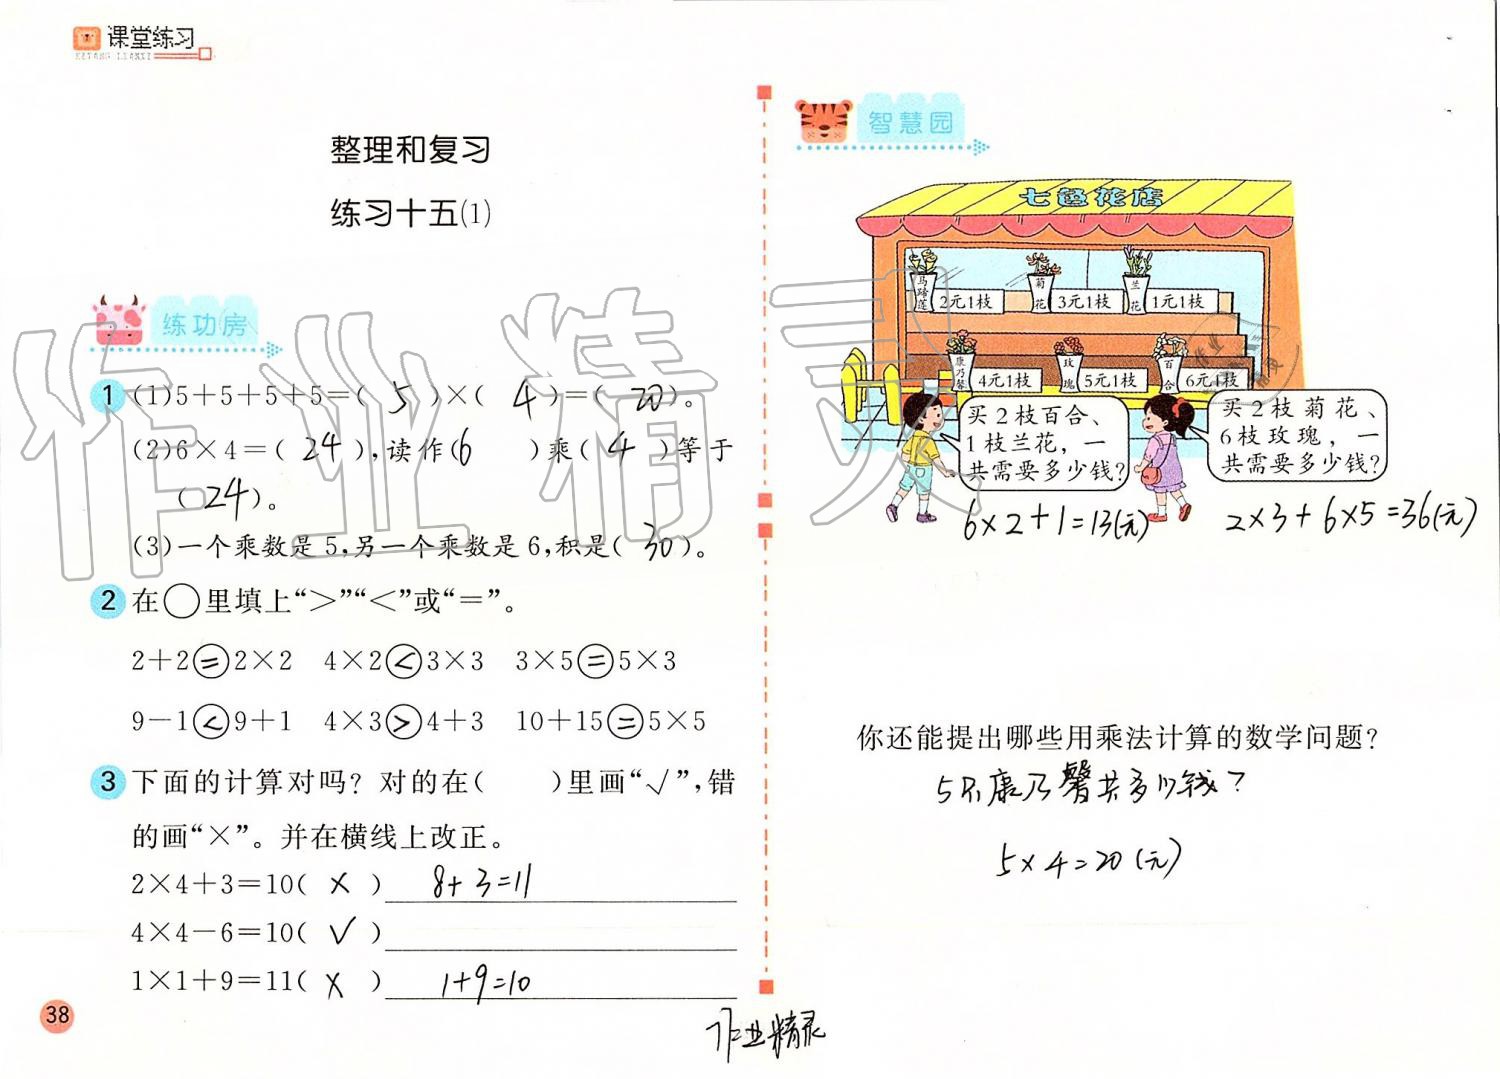 课堂练习
KETANG LIANXI
整理和复习
练习十五(1)
练功房
1 (1)5+5+5+5=( 5 )×( 4 )=( 20 )。
(2)6×4=( 24 ),读作(6 )乘( 4 )等于
( 24 )。
(3)一个乘数是5,另一个乘数是6,积是( 30 )。
2 在○里填上“>”“<”或“=”。
2+2=2×2 4×2<3×3 3×5=5×3
9-1<9+1 4×3>4+3 10+15=5×5
3 下面的计算对吗?对的在( )里画“√”,错
的画“×”。并在横线上改正。
2×4+3=10( × ) 8+3=11
4×4-6=10( √ )
1×1+9=11( × ) 1+9=10
38
智慧园
七色花店
马蹄莲 2元1枝 菊花 3元1枝 兰花 1元1枝
康乃馨 4元1枝 玫瑰 5元1枝 百合 6元1枝
买2枝百合、
1枝兰花,一
共需要多少钱?
买2枝菊花、
6枝玫瑰,一
共需要多少钱?
6×2+1=13(元)
2×3+6×5=36(元)
你还能提出哪些用乘法计算的数学问题?
康乃馨共多少钱?
5×4=20(元)
作业精灵
作业精灵